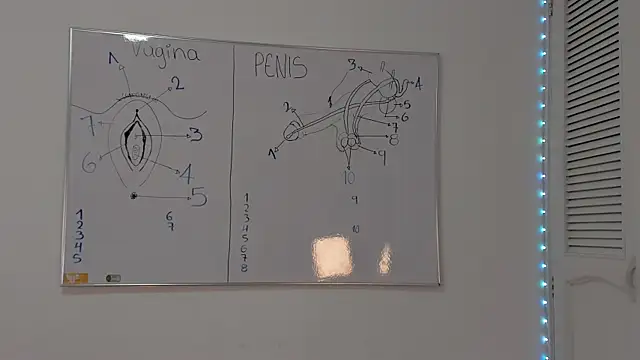 Vagina
1
2
7
3
6
4
5
1
2
3
4
5
6
7
PENIS
3
4
2
1
5
6
7
8
1
9
10
1
2
3
4
5
6
7
8
9
10